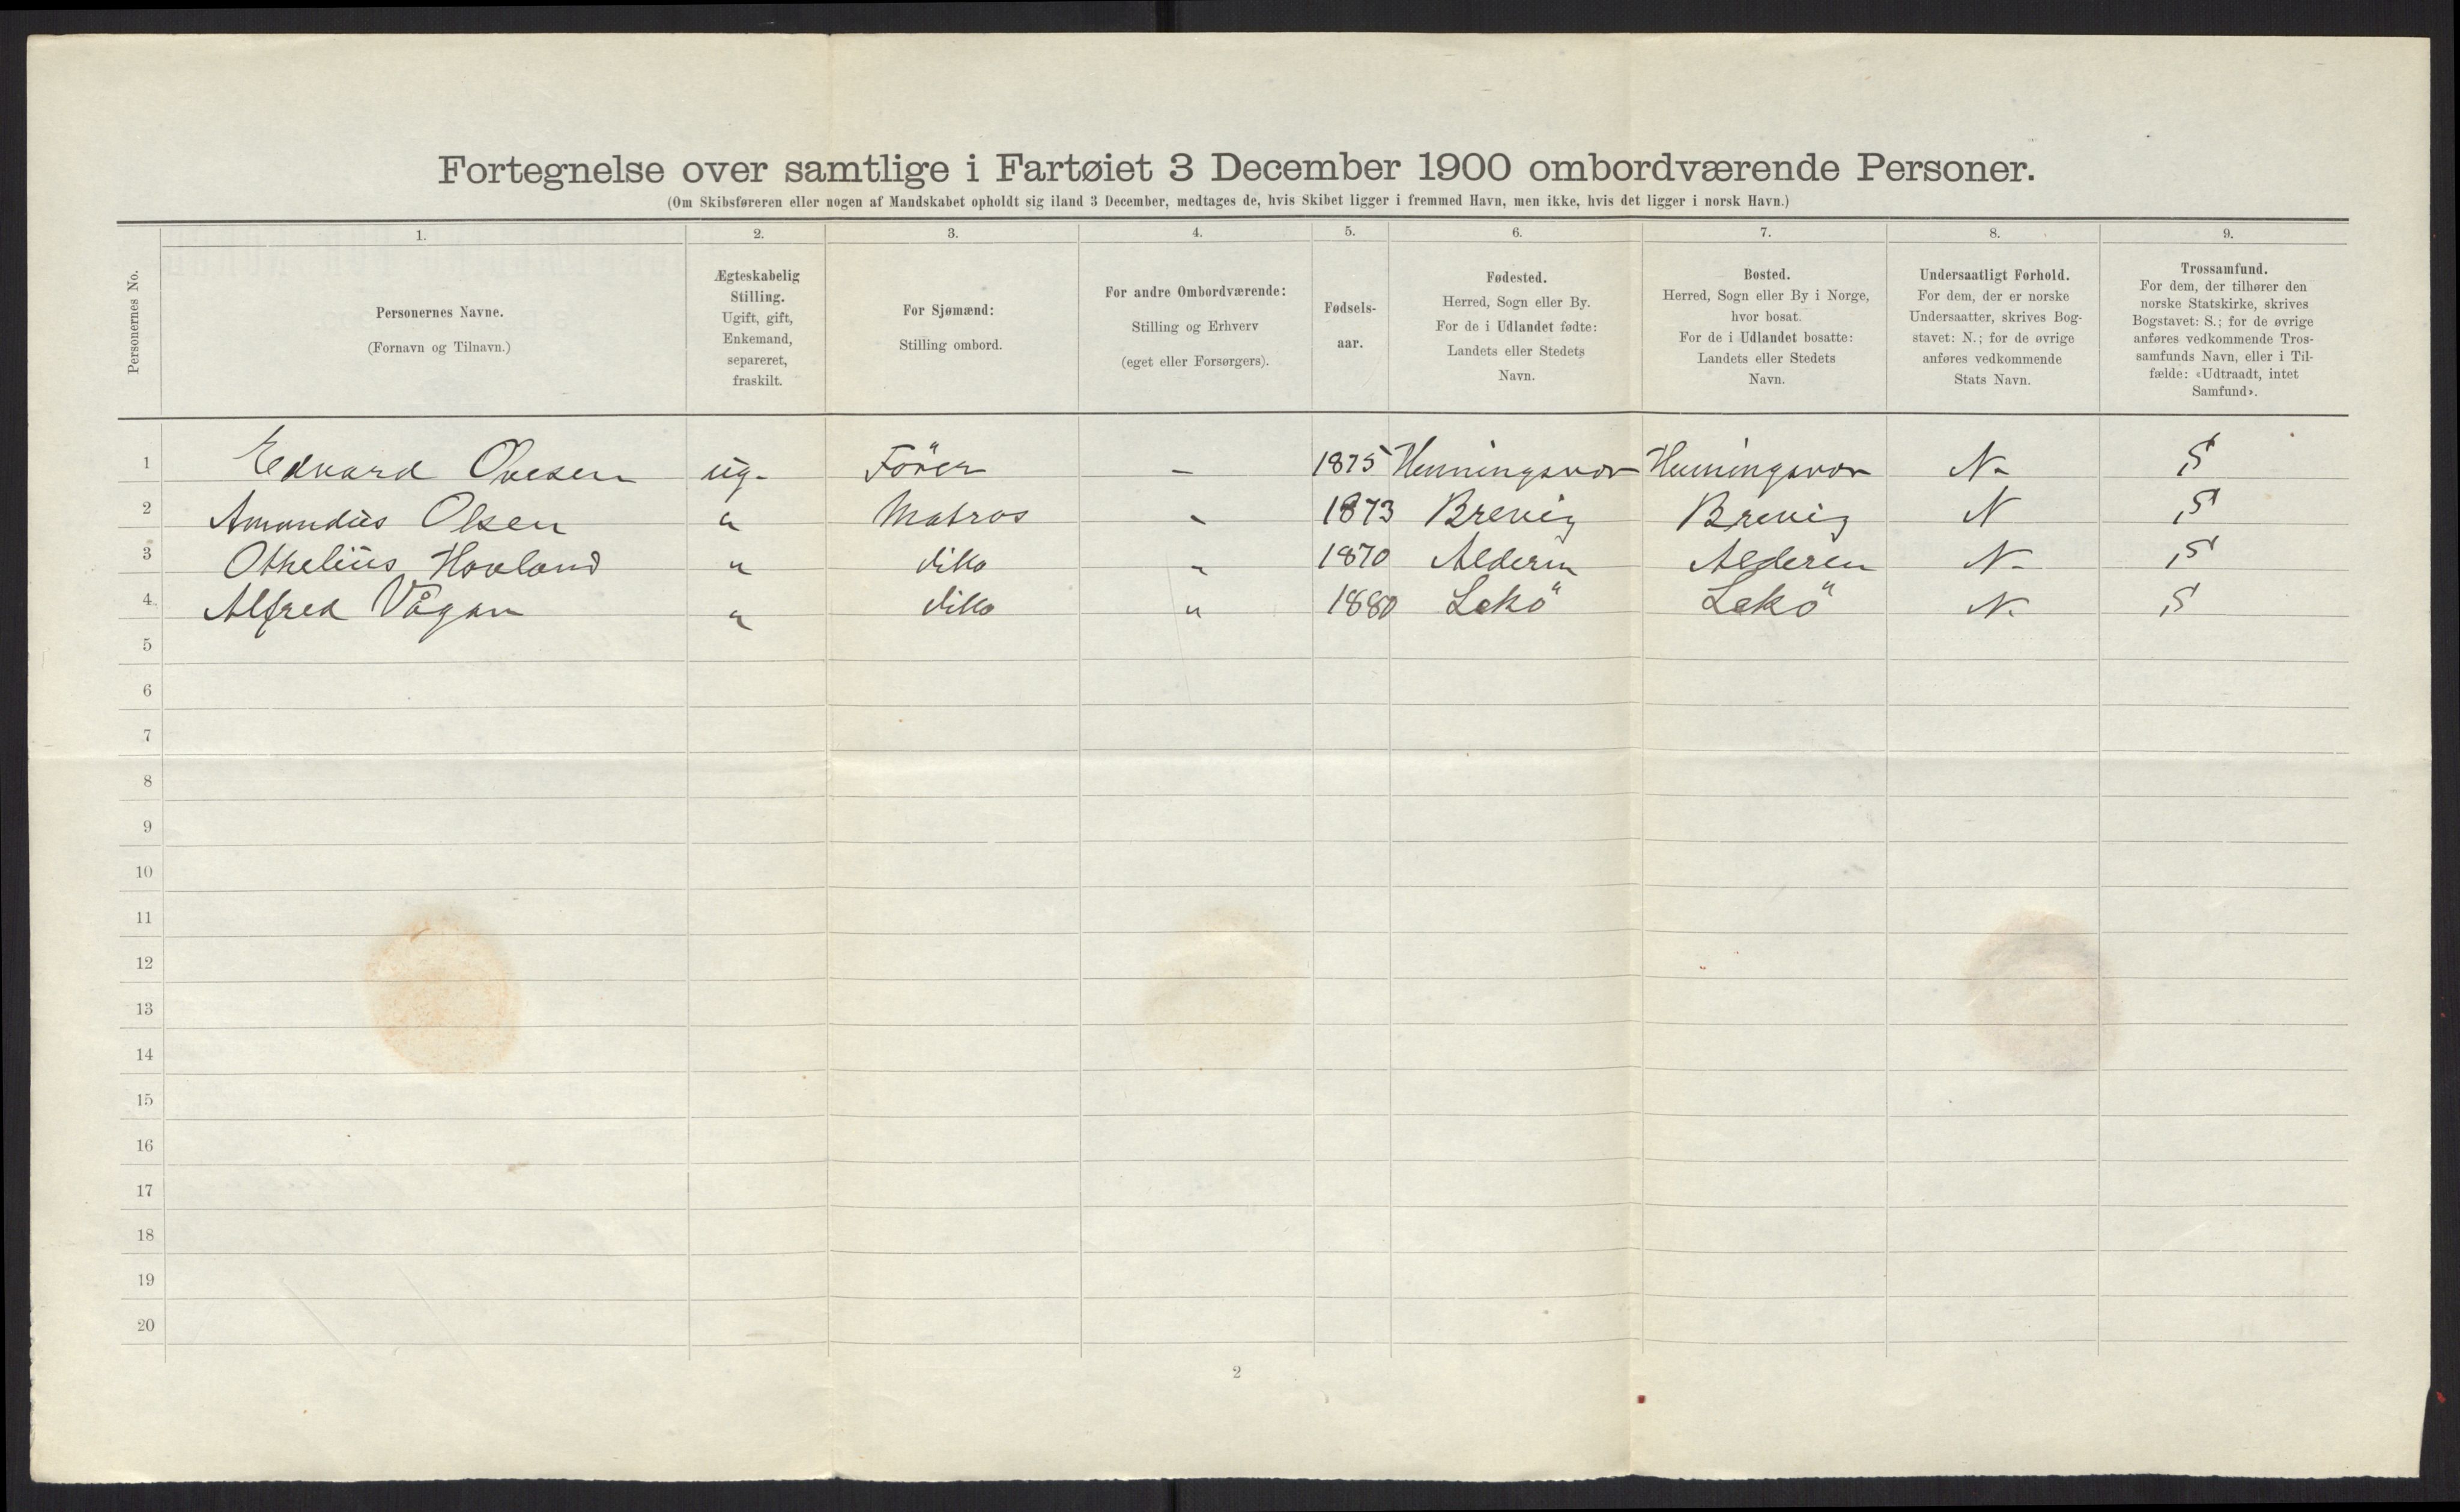 Fortegnelse over samtlige i Fartøiet 3 December 1900 ombordværende Personer.
(Om Skibsføreren eller nogen af Mandskabet opholdt sig iland 3 December, medtages de, hvis Skibet ligger i fremmed Havn, men ikke, hvis det ligger i norsk Havn.)
Personernes No.
1.
Personernes Navne.
(Fornavn og Tilnavn.)
2.
Ægteskabelig
Stilling.
Ugift, gift,
Enkemand,
separeret,
fraskilt.
3.
For Sjømænd:
Stilling ombord.
4.
For andre Ombordværende:
Stilling og Erhverv
(eget eller Forsørgers).
5.
Fødsels-
aar.
6.
Fødested.
Herred, Sogn eller By.
For de i Udlandet fødte:
Landets eller Stedets
Navn.
7.
Bosted.
Herred, Sogn eller By i Norge,
hvor bosat.
For de i Udlandet bosatte:
Landets eller Stedets
Navn.
8.
Undersaatligt Forhold.
For dem, der er norske
Undersaatter, skrives Bog-
stavet: N.; for de øvrige
anføres vedkommende
Stats Navn.
9.
Trossamfund.
For dem, der tilhører den
norske Statskirke, skrives
Bogstavet: S.; for de øvrige
anføres vedkommende Tros-
samfunds Navn, eller i Til-
fælde: «Udtraadt, intet
Samfund».
1 Edvard Ovesen ug. Förer — 1875 Henningsvær Henningsvær N. S
2 Amandus Olsen " Matros " 1873 Brevig Brevig N S
3 Othelius Havland " ditto " 1870 Alderen Alderen N. S
4 Alfred Vågan " ditto " 1880 Lekö Lekö N. S
5
6
7
8
9
10
11
12
13
14
15
16
17
18
19
20
2